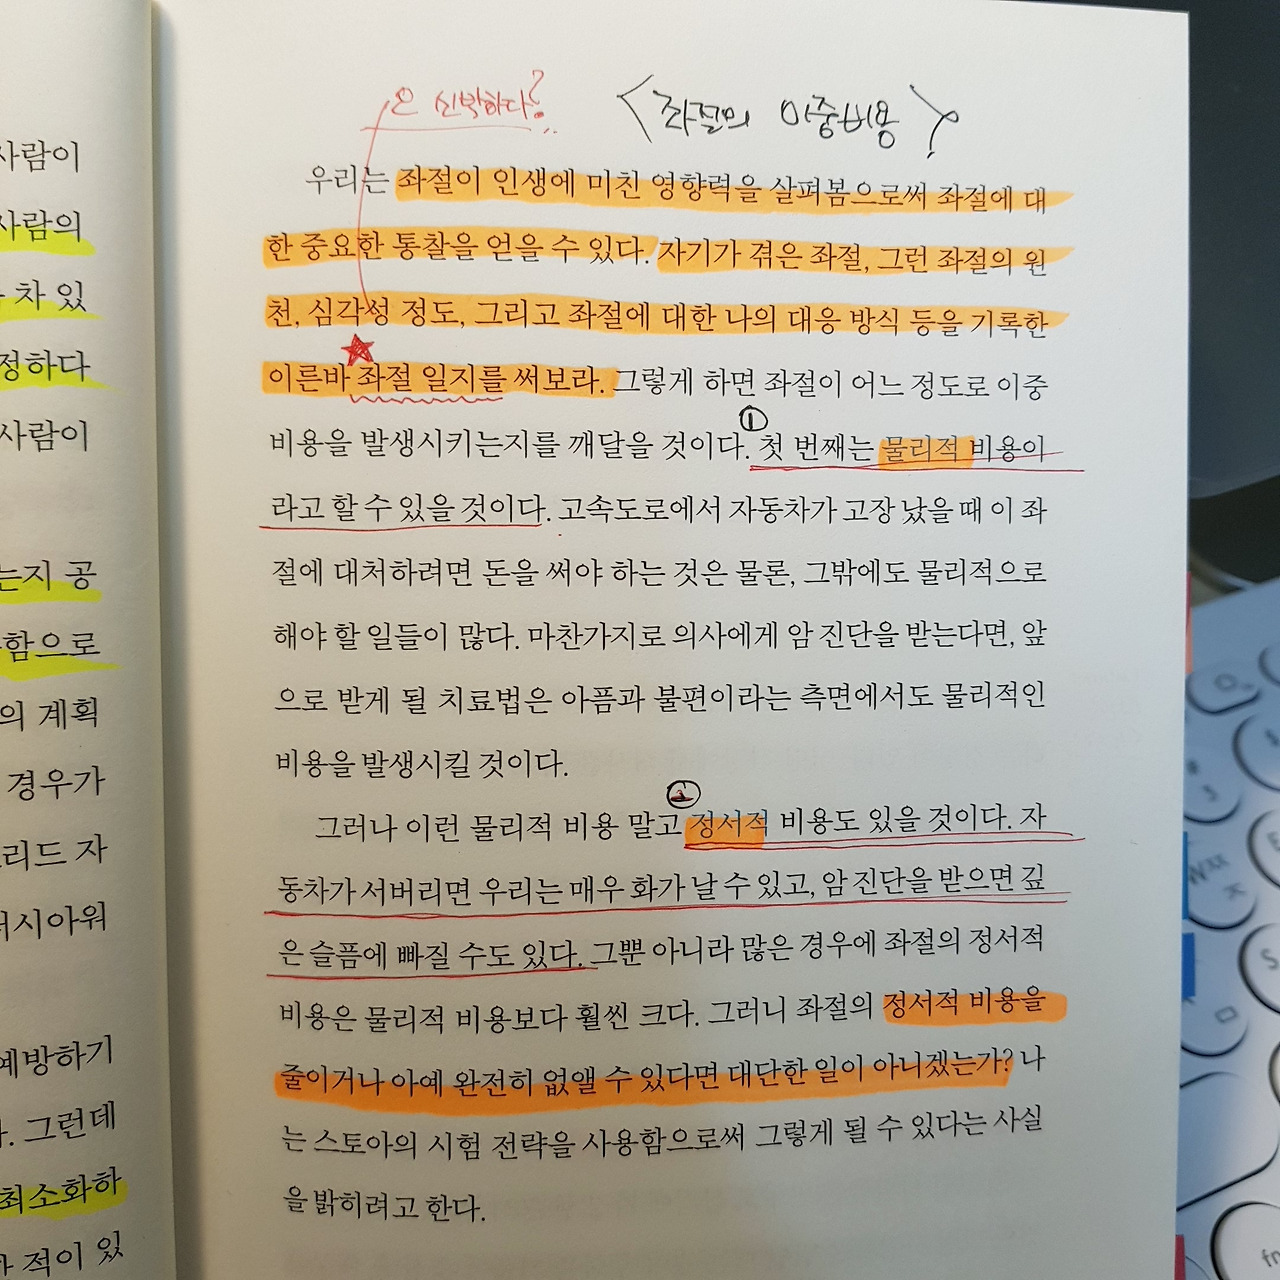 사람이
사람의
차 있
정하다
사람이
는지 공
함으로
의 계획
경우가
리드 자
러시아워
예방하기
. 그런데
최소화하
적이 있
오 신박하다?
<좌절의 이중비용>?
우리는 좌절이 인생에 미친 영향력을 살펴봄으로써 좌절에 대
한 중요한 통찰을 얻을 수 있다. 자기가 겪은 좌절, 그런 좌절의 원
천, 심각성 정도, 그리고 좌절에 대한 나의 대응 방식 등을 기록한
이른바 좌절 일지를 써보라. 그렇게 하면 좌절이 어느 정도로 이중
①
비용을 발생시키는지를 깨달을 것이다. 첫 번째는 물리적 비용이
라고 할 수 있을 것이다. 고속도로에서 자동차가 고장 났을 때 이 좌
절에 대처하려면 돈을 써야 하는 것은 물론, 그밖에도 물리적으로
해야 할 일들이 많다. 마찬가지로 의사에게 암 진단을 받는다면, 앞
으로 받게 될 치료법은 아픔과 불편이라는 측면에서도 물리적인
비용을 발생시킬 것이다.
②
그러나 이런 물리적 비용 말고 정서적 비용도 있을 것이다. 자
동차가 서버리면 우리는 매우 화가 날 수 있고, 암 진단을 받으면 깊
은 슬픔에 빠질 수도 있다. 그뿐 아니라 많은 경우에 좌절의 정서적
비용은 물리적 비용보다 훨씬 크다. 그러니 좌절의 정서적 비용을
줄이거나 아예 완전히 없앨 수 있다면 대단한 일이 아니겠는가? 나
는 스토아의 시험 전략을 사용함으로써 그렇게 될 수 있다는 사실
을 밝히려고 한다.